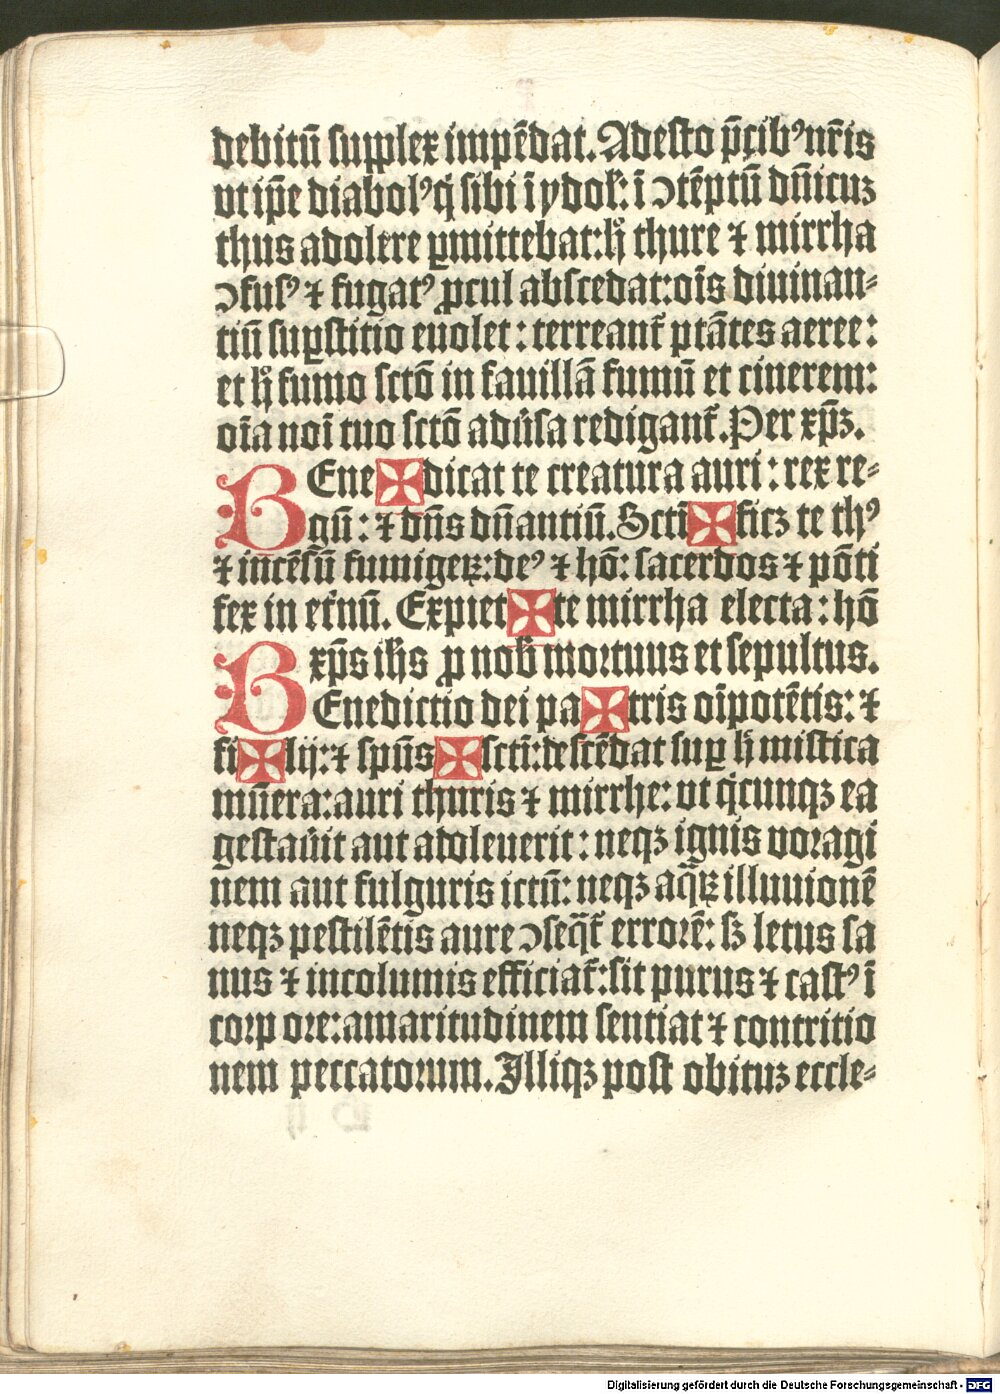 debitū ſupplex impēdat. Adeſto p̄cibꝰ nr̄is
vt ip̄e diabolꝰ q̇ ſibi ī ydoł: ī ↄtēptū dn̄icuz
thus adolere ꝑmittebat: h̊ thure ⁊ mirrha
ↄfuſꝰ ⁊ fugatꝰ ꝓcul abſcedat: oīs diuinan⸗
tiū ſuꝑſtitio euolet: terreant᷑ ptātes aeree:
et h̊ fumo ſctō in fauillā fumū et cinerem:
oīa noī tuo ſctō adūſa redigant᷑. Per xp̄ꝫ.
BEne ✠ dicat te creatura auri: rex re⸗
gū: ⁊ dn̄s dn̄antiū. Sctī ✠ ficꝫ te thꝰ
⁊ incēſū fumigeꝝ: deꝰ ⁊ hō: ſacerdos ⁊ pōti
fex in et᷑nū. Expiet ✠ te mirrha electa: hō
xp̄s ih̄s ꝓ nob̄ moꝛtuus et ſepultus.
BEnedictio dei pa ✠ tris oīpotētis: ⁊
fi ✠ lij: ⁊ ſpūs ✠ ſctī: deſcēdat ſuꝑ h̄ miſtica
mūera: auri thuris ⁊ mirrhe: vt q̇cunqꝫ ea
geſtau̇it aut adoleuerit: neqꝫ ignis voꝛagi
nem aut fulguris ictū: neqꝫ aq̄ꝝ illuuionē
neqꝫ peſtilētis aure ↄſeq̄t᷑ erroꝛē: ſꝫ letus ſa
nus ⁊ incolumis efficiat᷑: ſit purus ⁊ caſtꝰ ī
coꝛp oꝛe: amaritudinem ſentiat ⁊ contritio
nem peccatoꝛum. Illiqꝫ poſt obituꝫ eccle⸗
Digitalisierung gefördert durch die Deutsche Forschungsgemeinschaft - DFG